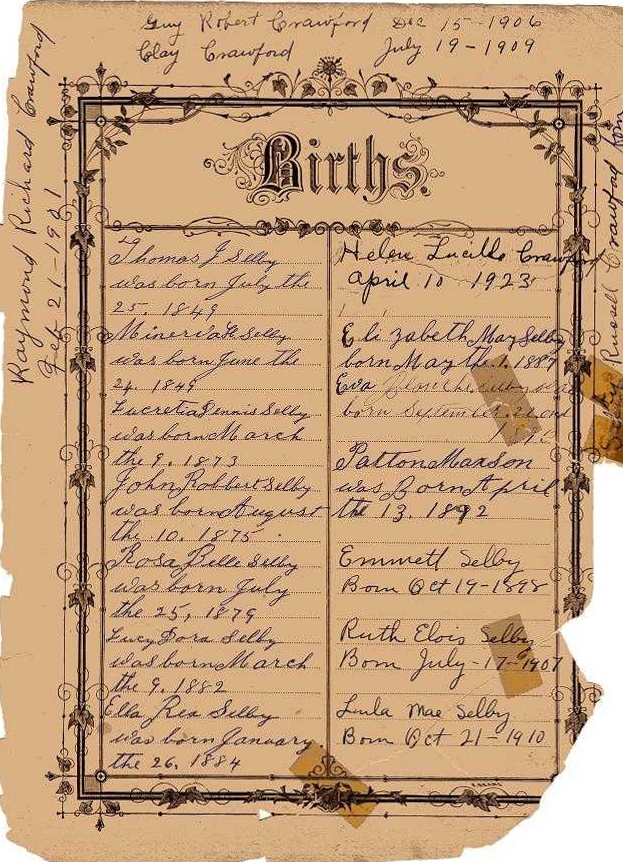 Guy Robert Crawford Dec 15-1906
Clay Crawford July 19-1909
Raymond Richard Crawford
Feb 21-1901
Births.
Thomas J Selby
was born July the
25. 1849
Minerva Selby
was born June the
24. 1849
Lucretia Dennis Selby
was born March
the 9. 1873
John Robbert Selby
was born August
the 10. 1875.
Rosa Belle Selby
was born July
the 25, 1879
Lucy Dora Selby
was born March
the 9. 1882
Ella Rea Selby
was born January
the 26. 1884
Helen Lucille Crawford
April 10 1923
Elizabeth May Selby
born May the 1. 1887
Eva Selby
born September
Patton Maxson
was Born April
the 13. 1892
Emmett Selby
Born Oct 19-1898
Ruth Elois Selby
Born July-17-1907
Lula Mae Selby
Born Oct 21-1910
Russell Crawford born